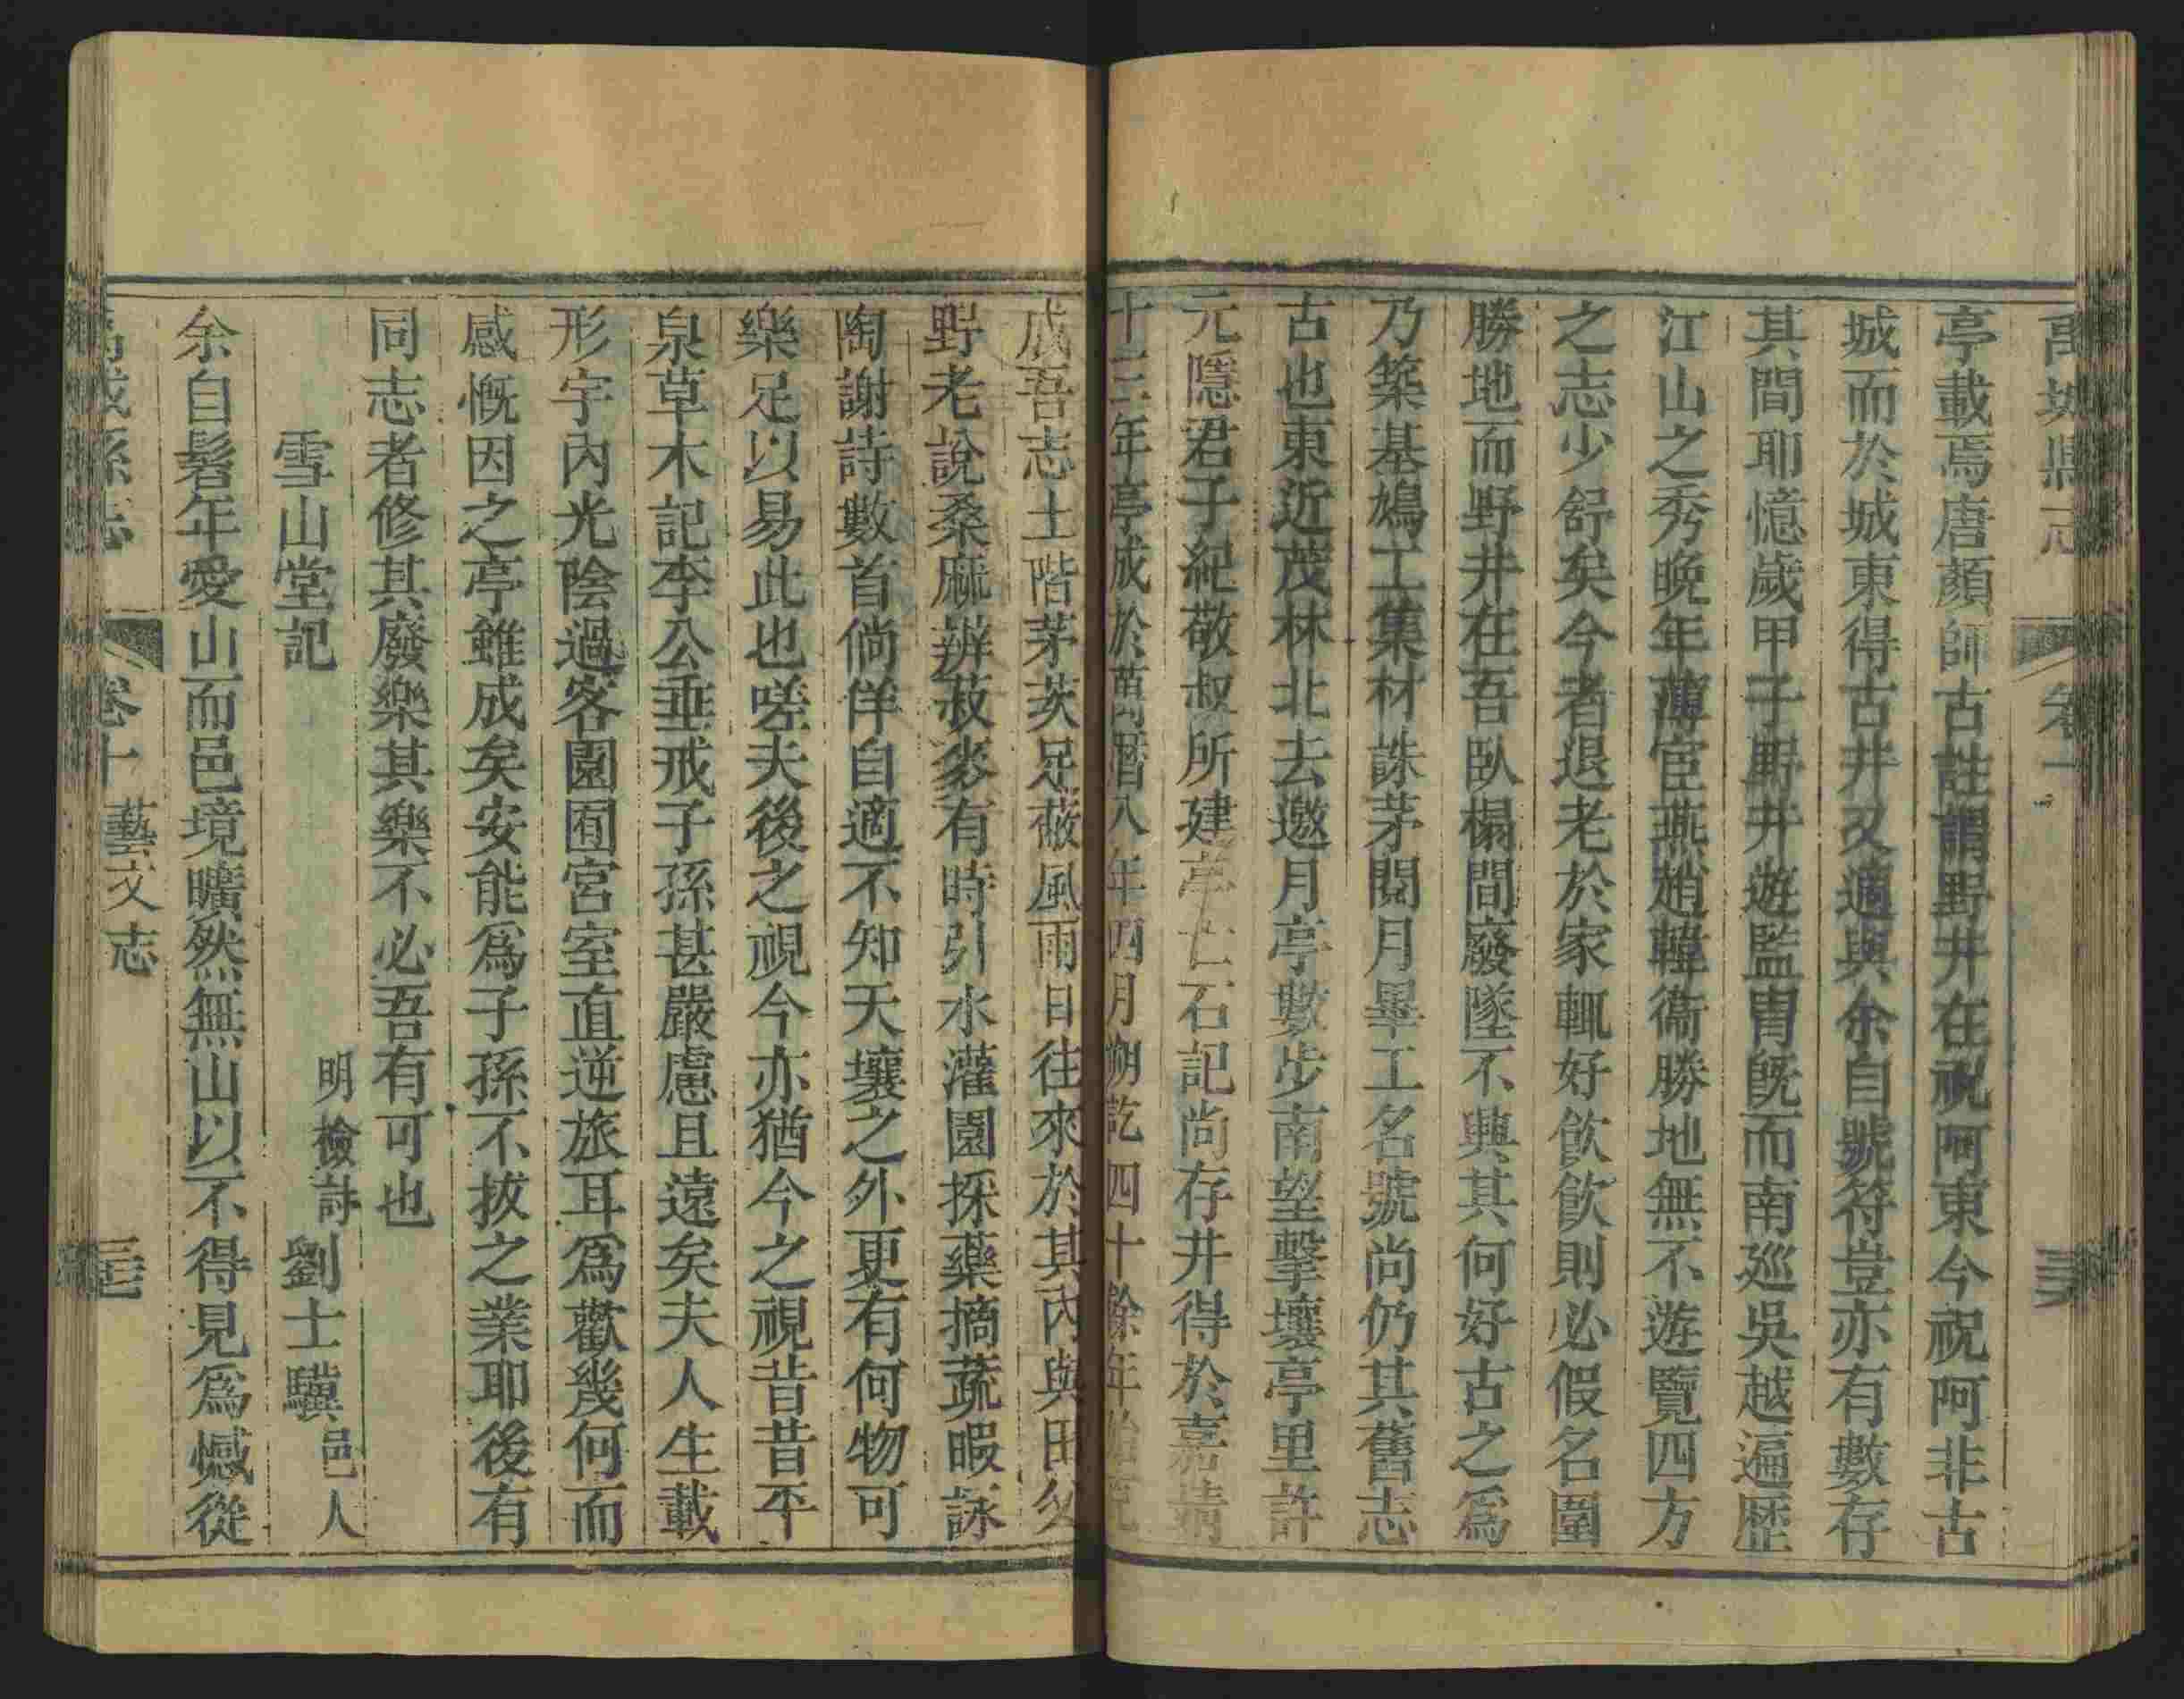 禹城縣志
卷十
亭載焉唐顏師古註謂野井在祝呵東今祝呵非古
城而於城東得古井又適與余自號符豈亦有數存
其間耶憶歲甲子野井遊監胄旣而南巡吳越遍歷
江山之秀晚年薄宦燕趙韓衞勝地無不遊覽四方
之志少舒矣今者退老於家輒好飮飮則必假名園
勝地而野井在吾臥榻間廢墜不興其何好古之爲
乃築基鳩工集材誅茅閱月畢工名號尚仍其舊志
古也東近茂林北去邀月亭數步南望擊壤亭里許
元隱君子紀敬叔所建亭亡石記尚存井得於嘉靖
十三年亭成於萬曆八年四月朔訖四十餘年始克
成吾志土階茅茨足蔽風雨日往來於其內與田父
野老說桑麻辨菽麥有時引水灌園採藥摘蔬暇詠
陶謝詩數首倘佯自適不知天壤之外更有何物可
樂足以易此也嗟夫後之視今亦猶今之視昔昔平
泉草木記李公垂戒子孫甚嚴慮且遠矣夫人生載
形宇內光陰過客園囿宮室直逆旅耳爲歡幾何而
感慨因之亭雖成矣安能爲子孫不拔之業耶後有
同志者修其廢樂其樂不必吾有可也
雪山堂記
明檢討劉士驥邑人
余自髫年愛山而邑境曠然無山以不得見爲憾從
禹城縣志
卷十藝文志